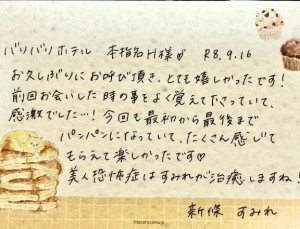 バリバリホテル 本指名H様♂ R8.9.16
お久しぶりにお呼び頂き、とても嬉しかったです！
前回お会いした時の事をよく覚えて下さっていて、
感激でした…！今回も最初から最後まで
パンパンになっていて、たくさん感じて
もらえて楽しかったです♡
美人恐怖症はすみれが治癒しますね！
新條 すみれ